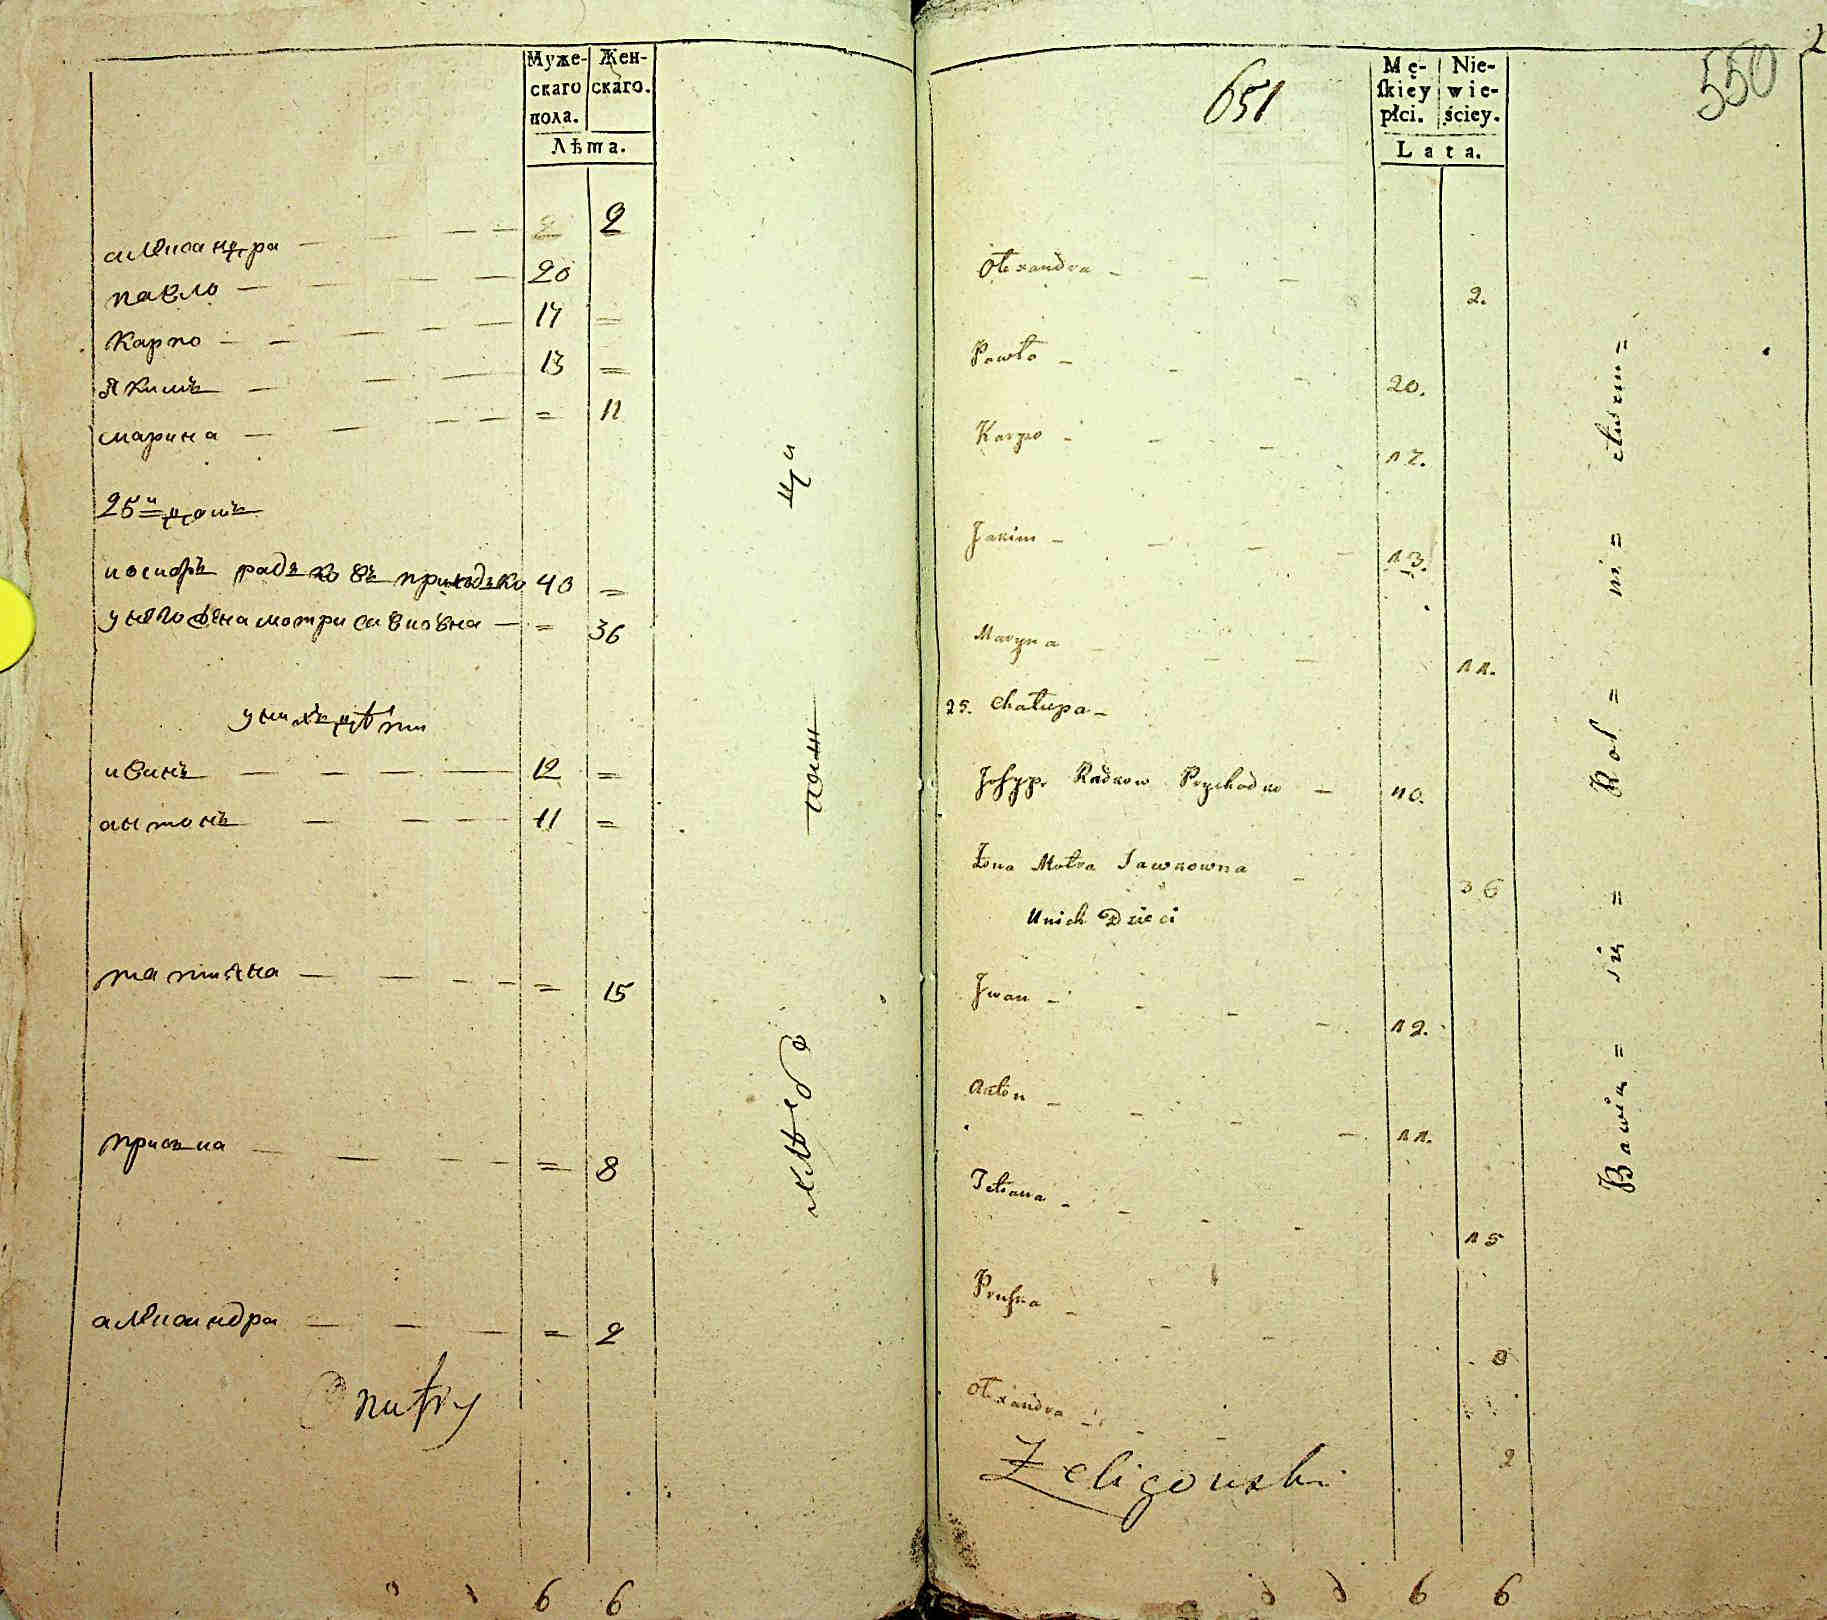 Муже-
скаго
пола.
Жен-
скаго.
Лѣта.
александра — — — — 2 2
павло — — — — 20
Карпо — — — — 17 =
Якимъ — — — 13 =
марина — — — — = 11
25й домъ
иосифъ радковъ приходько 40 =
у него жена мотря савковна — = 36
у нихъ дѣти
иванъ — — — — 12 =
антонъ — — — 11 =
татияна — — — — = 15
приська — — — — = 8
александра — — — = 2
хлебо
паш
ци
651
550
Mę-
ſkiey
płci.
Nie-
wie-
ściey.
Lata.
Olexandra - - - 2.
Pawło - - - 20.
Karpo - - - 17.
Jakim - - - - 13.
Maryna - - - 11.
25. Chałupa -
Josyp Radkow Prychodko - 40.
Żona Motra Sawkowna - 36
Unich Dzieci
Jwan - - - - 12.
Anton - - - 11.
Tetiana - - - - 15
Pryska - - - 8
Olexandra - - 2
Żeligowski
Bawią = się = Rol = ni = ctwem =
6 6
6 6